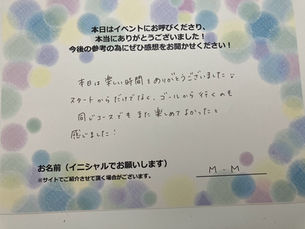 本日はイベントにお呼びくださり、
本当にありがとうございました！
今後の参考の為にぜひ感想をお聞かせください！
本日は楽しい時間をありがとうございました。
スタートからだけでなく、ゴールから行くのも
同じコースでもまた楽しめてよかったと
感じました！
お名前（イニシャルでお願いします）
M・M
※サイトでご紹介させて頂く場合がございます。